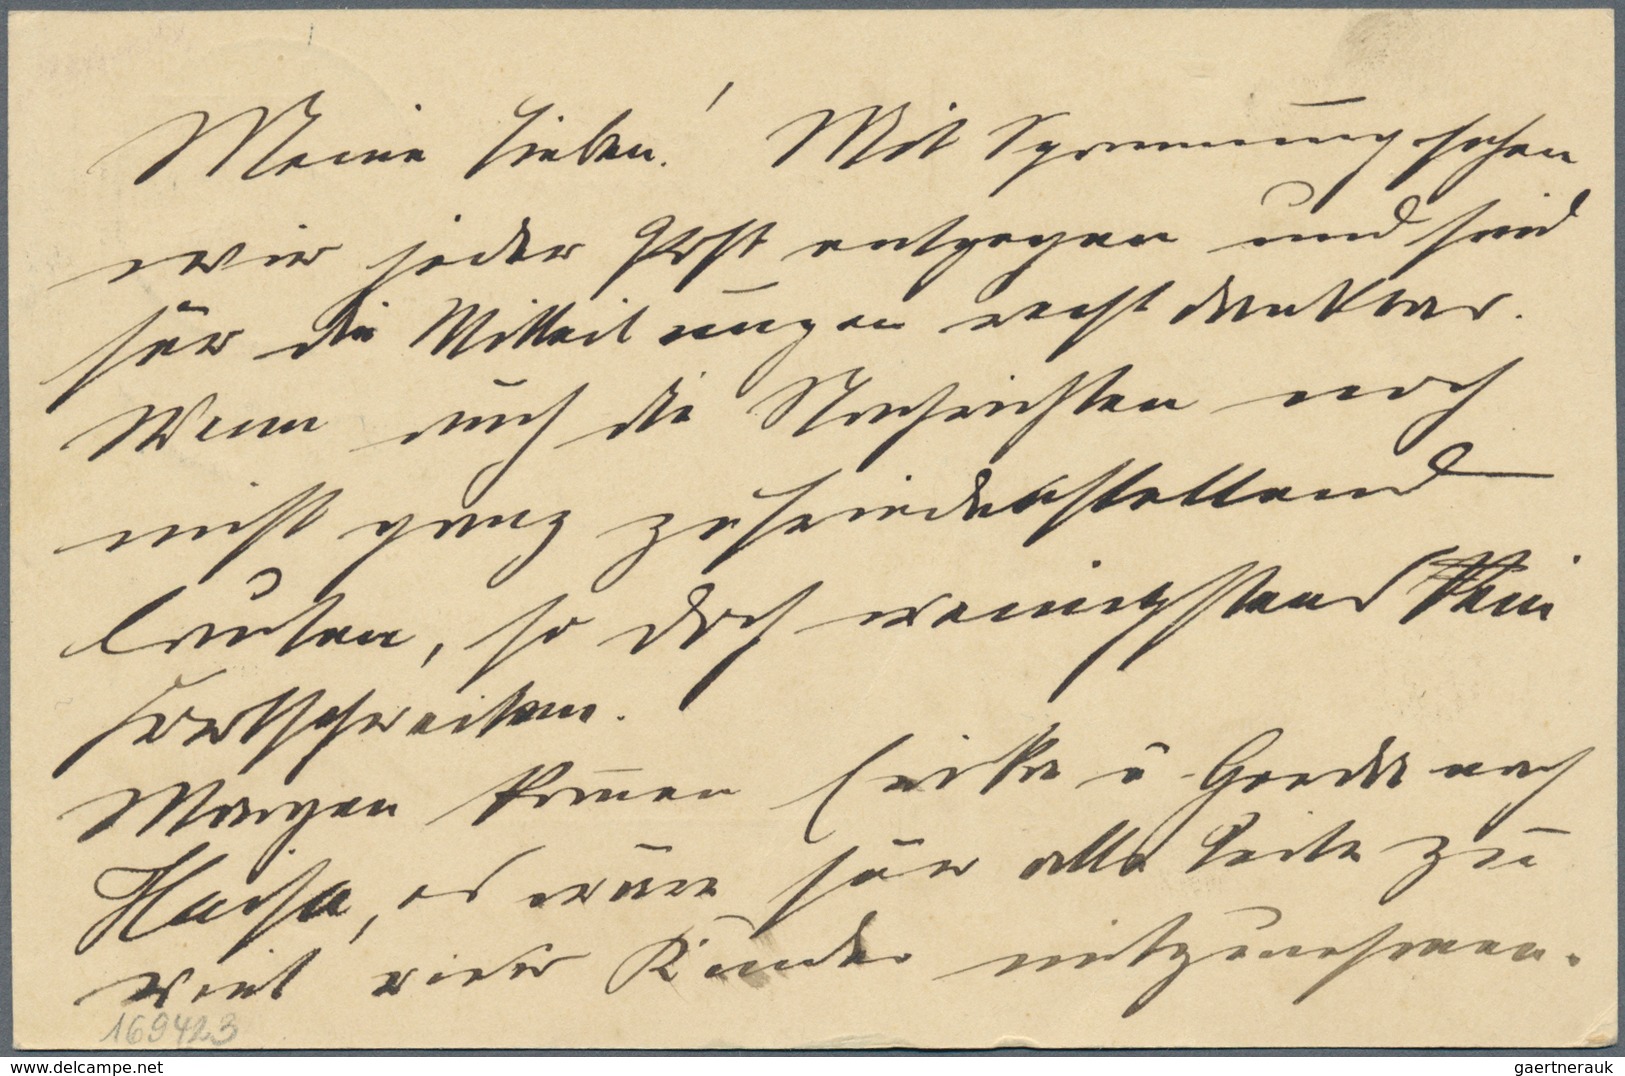 Meine Lieben! Mit Spannung sehen
wir jeder Post entgegen und sind
für die Mitteilungen recht dankbar.
Wenn auch die Nachrichten noch
nicht ganz zufriedenstellend
lauten, so doch wenigstens
fortschreiten.
Morgen kommen u. nach
Haifa, es wäre für alle Teile zu
viel vier Kinder mitzunehmen.
169423
www.delcampe.net
gaertnerauk